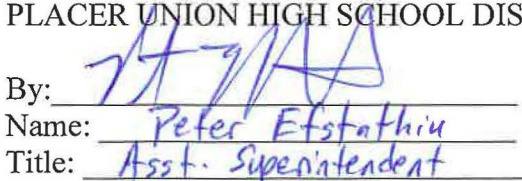 PLACER UNION HIGH SCHOOL DIS
By:
Name: Peter Efstathiu
Title: Asst. Superintendent